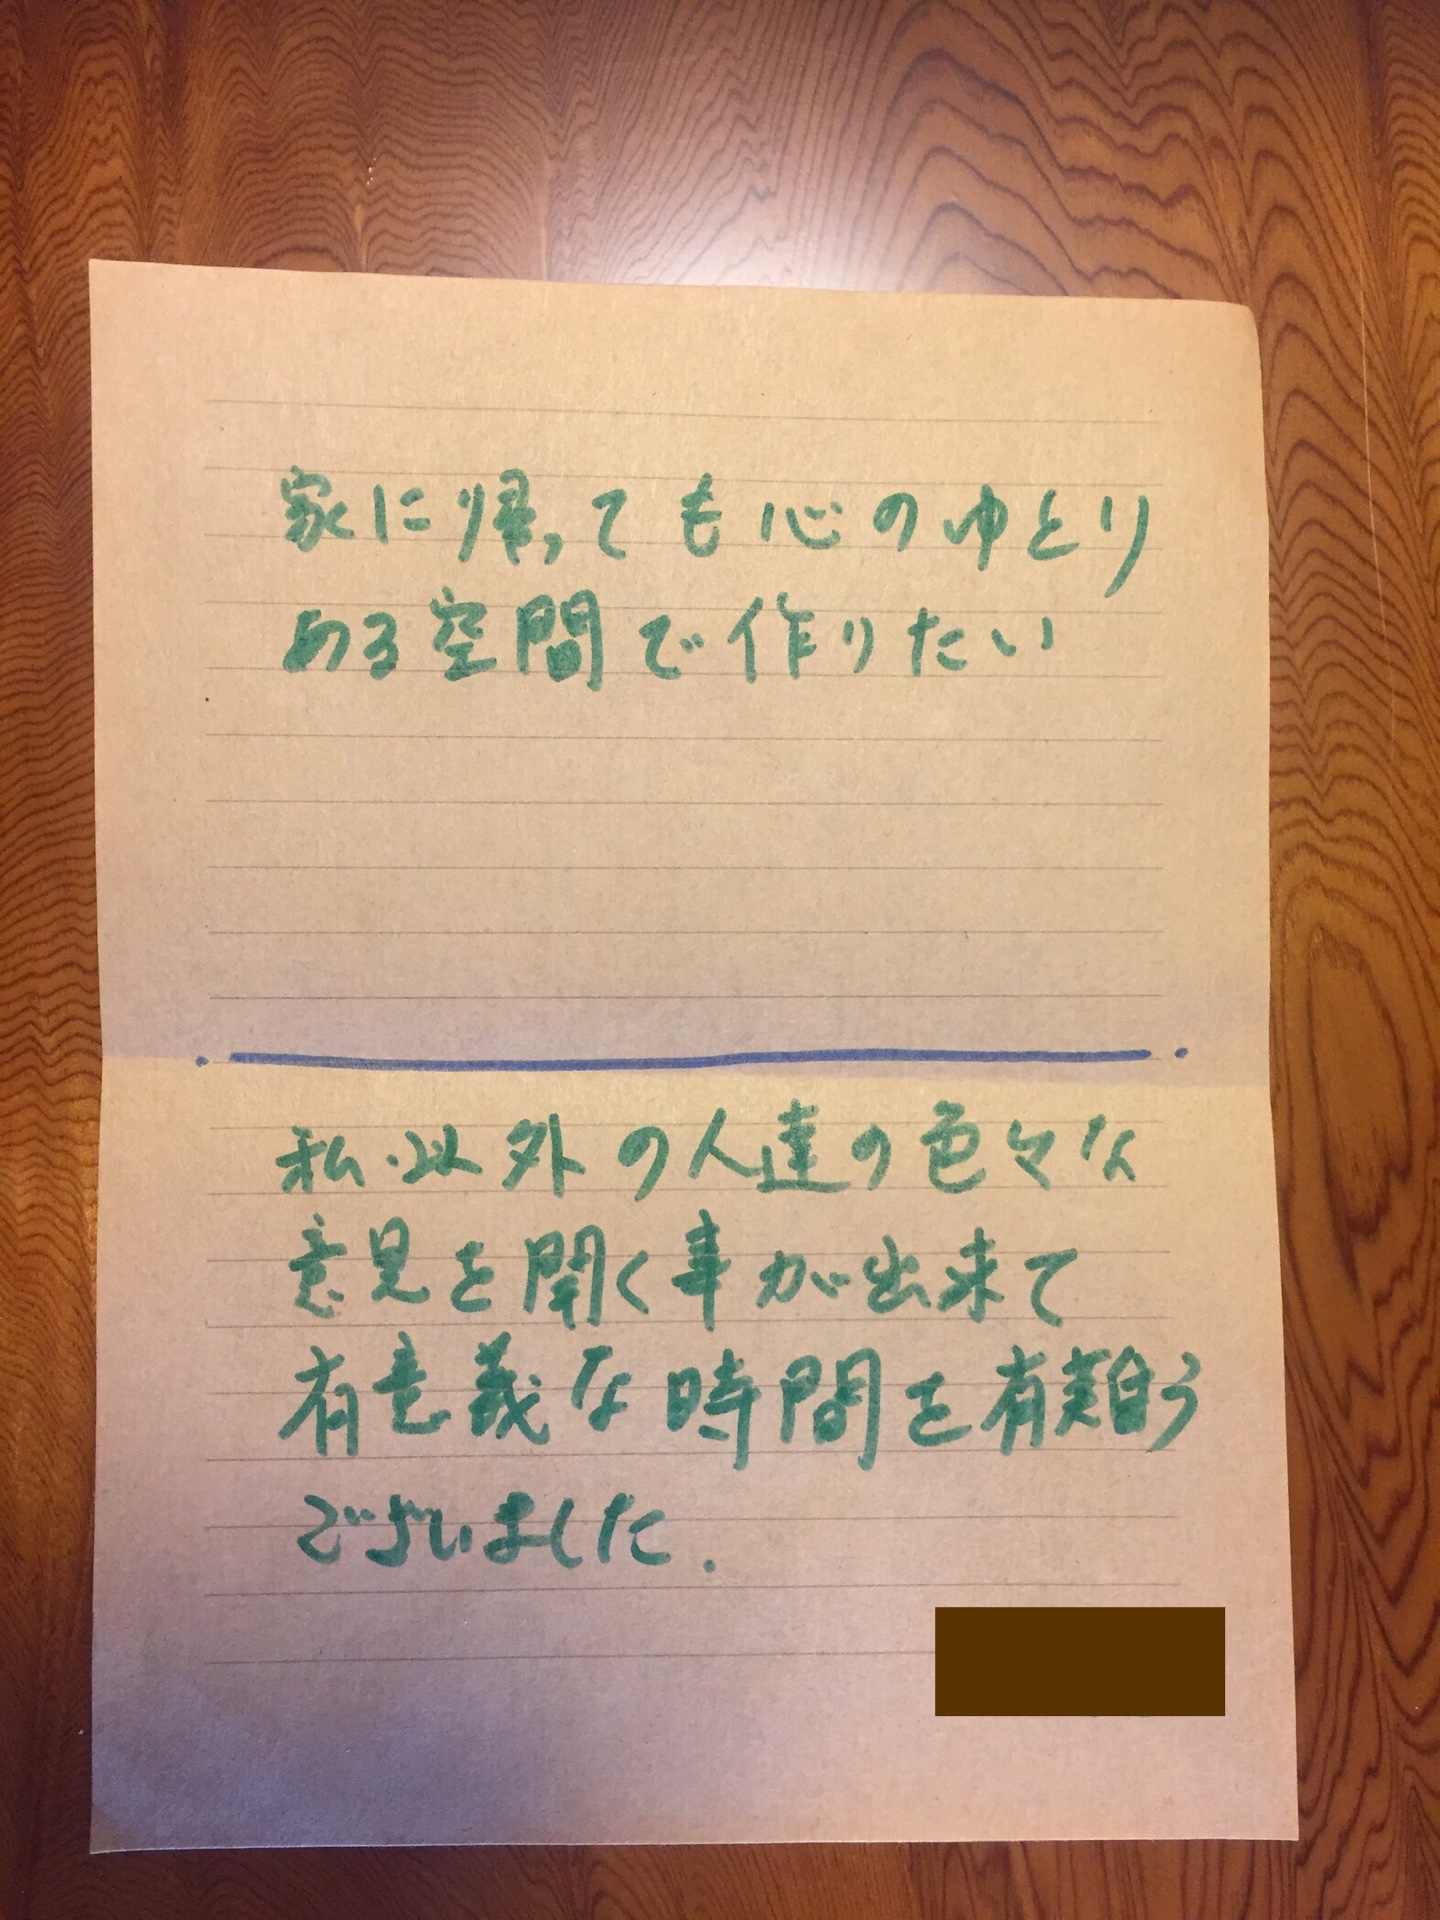 家に帰っても心のゆとり
ある空間で作りたい
私以外の人達の色々な
意見を聞く事が出来て
有意義な時間を有難う
ございました.